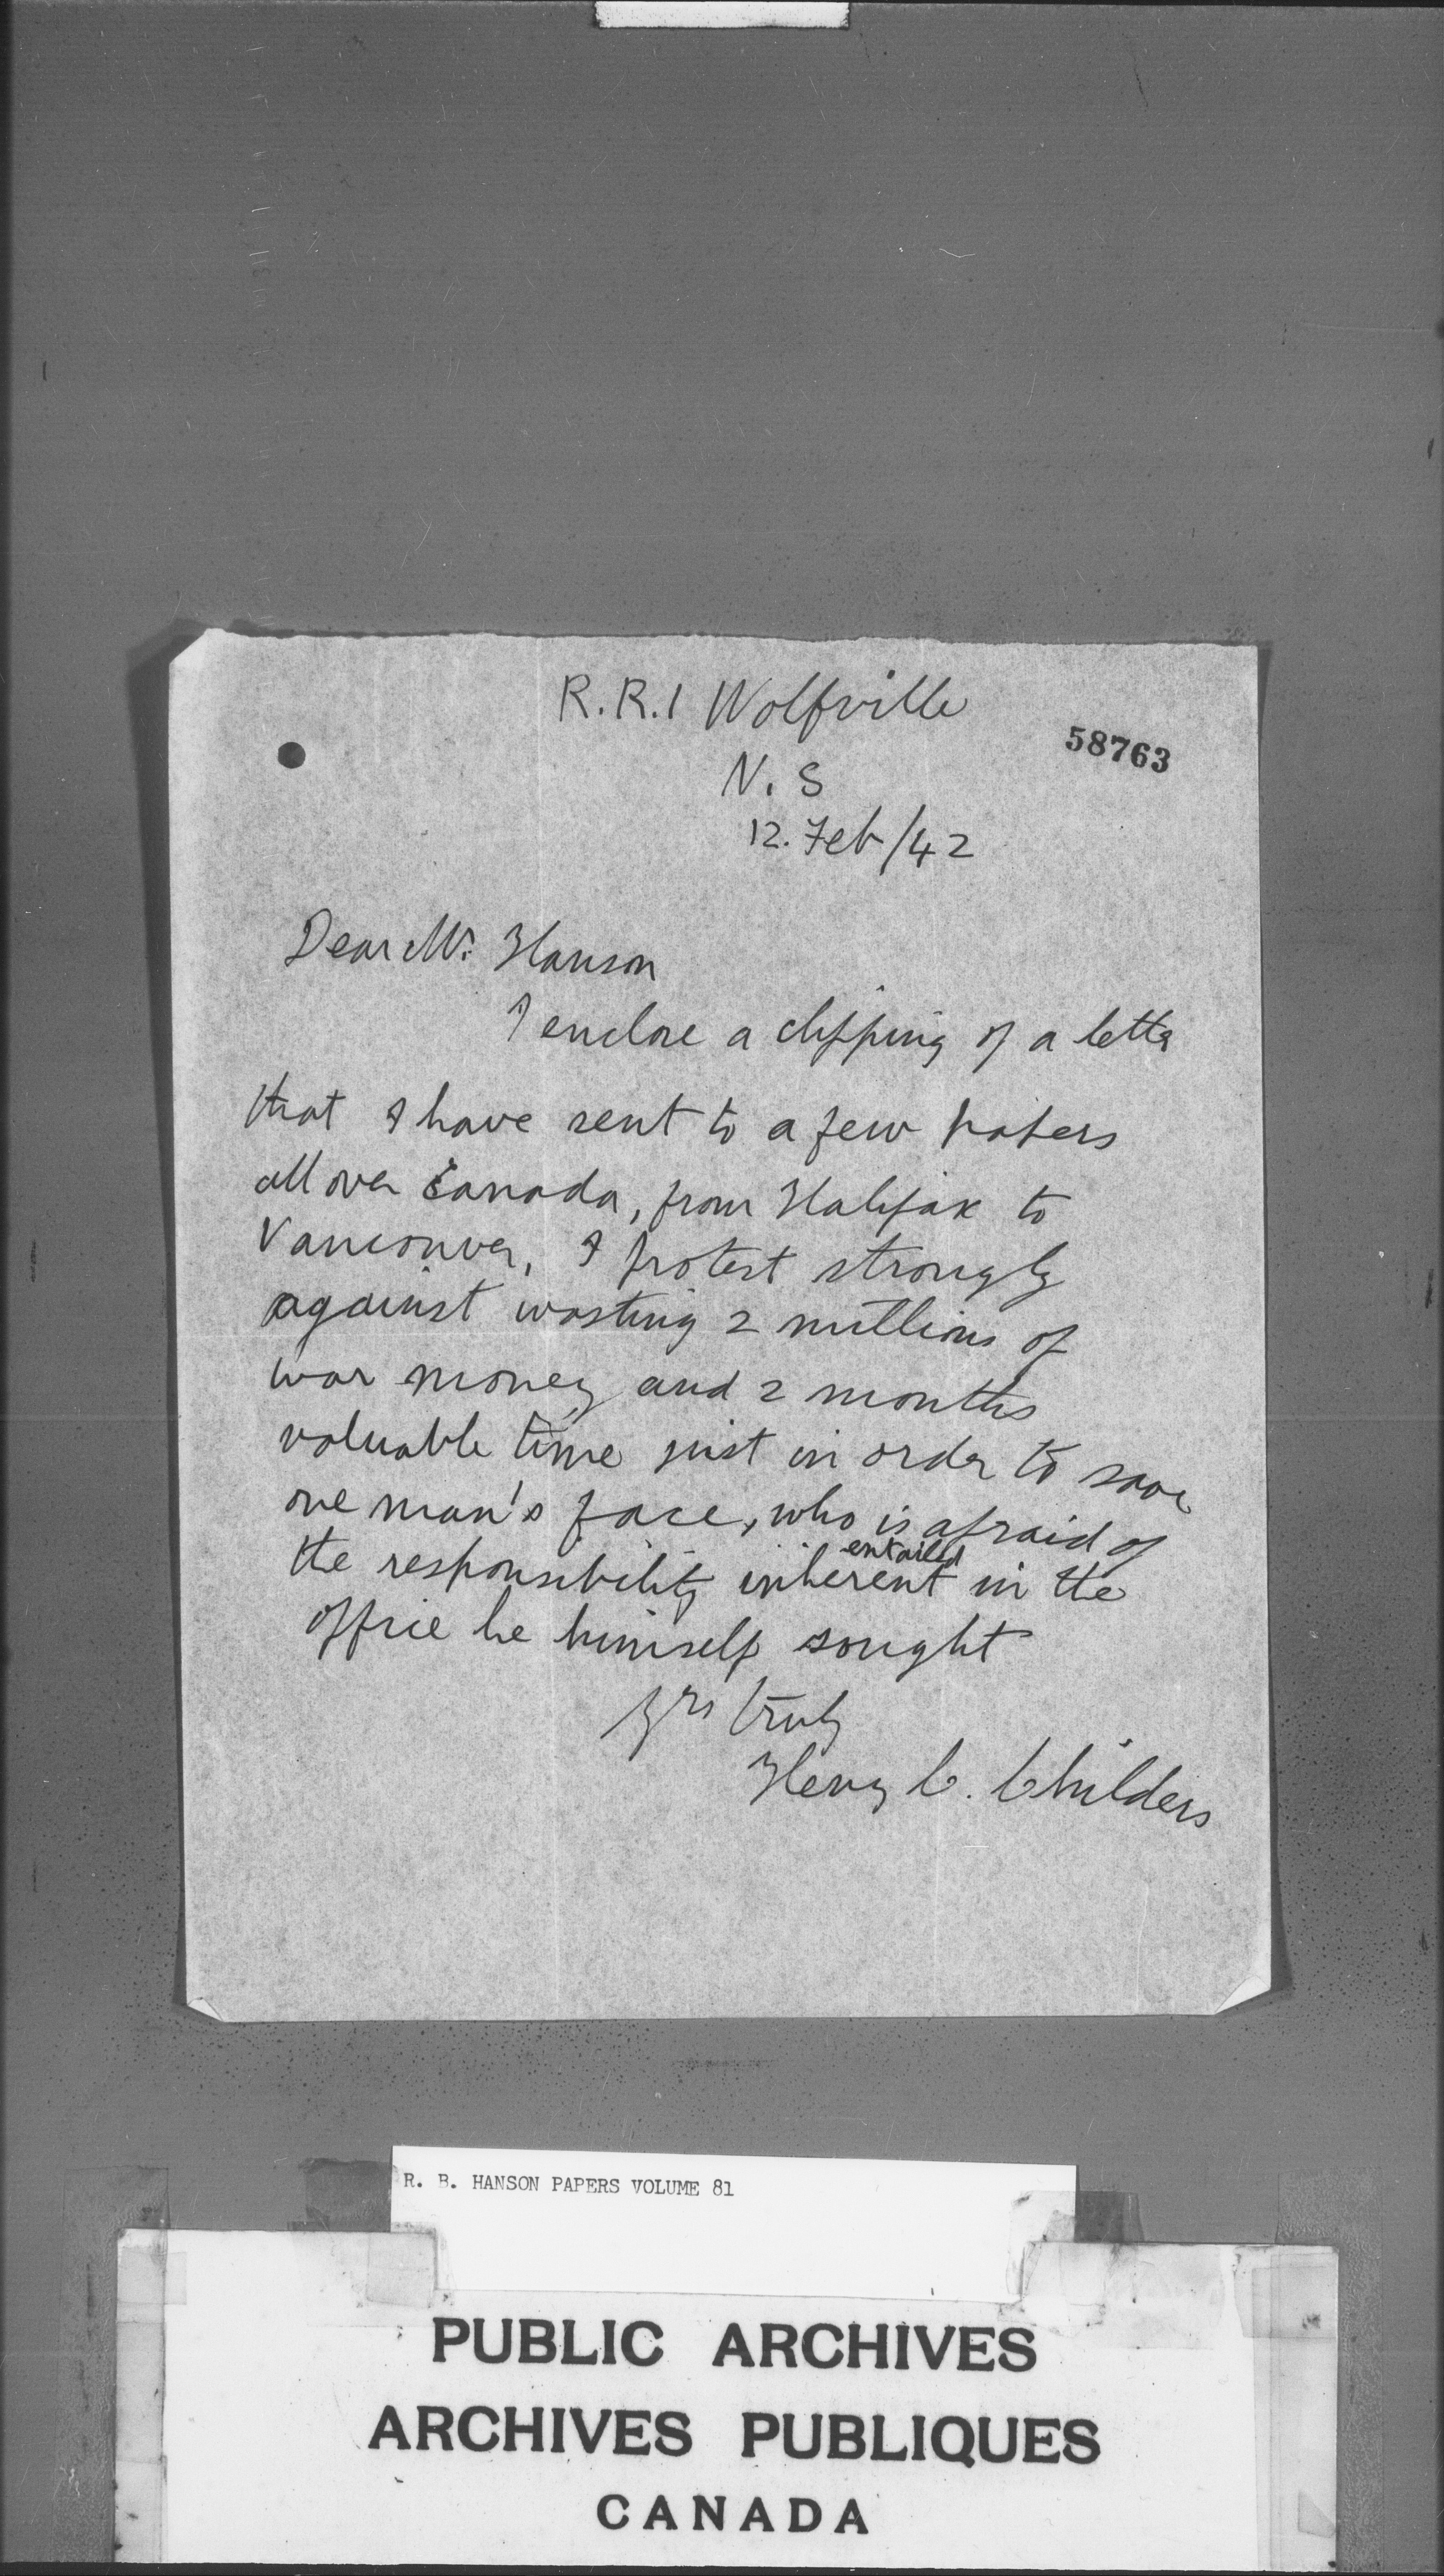 R.R.1 Wolfville
58763
N.S
12. Feb/42
Dear Mr. Hanson
I enclose a clipping of a letter
that I have sent to a few papers
all over Canada, from Halifax to
Vancouver, I protest strongly
against wasting 2 millions of
war money and 2 months
valuable time just in order to save
one man's face, who is afraid of
entailed
the responsibility inherent in the
office he himself sought
Yrs truly
Henry C. Childers
R. B. HANSON PAPERS VOLUME 81
PUBLIC ARCHIVES
ARCHIVES PUBLIQUES
CANADA